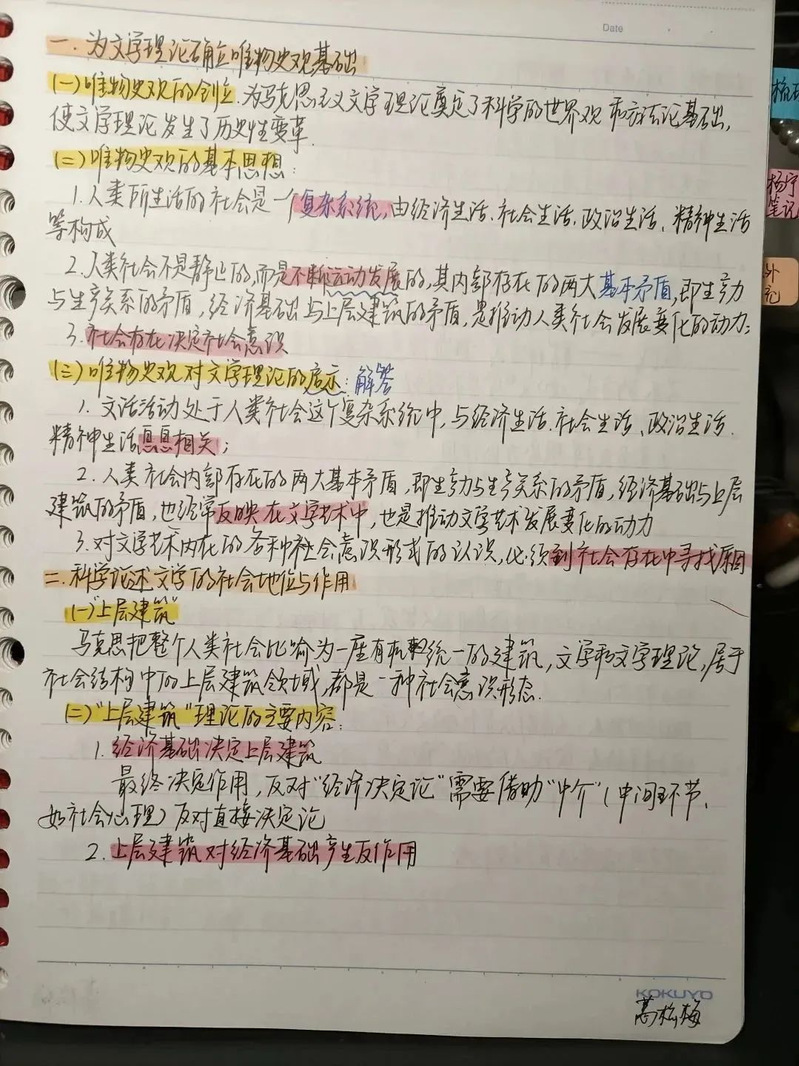 Date
一. 为文学理论确立唯物史观基础
(一) 唯物史观的创立. 为马克思主义文学理论奠定了科学的世界观和方法论基础,
使文学理论发生了历史性变革.
(二) 唯物史观的基本思想:
1. 人类所生活的社会是一个复杂系统, 由经济生活. 社会生活. 政治生活、精神生活
等构成
2. 人类社会不是静止的, 而是不断运动发展的, 其内部存在的两大基本矛盾, 即生产力
与生产关系的矛盾, 经济基础与上层建筑的矛盾, 是推动人类社会发展变化的动力;
3. 社会存在决定社会意识
(三) 唯物史观对文学理论的启示: 解答
1. 文活活动处于人类社会这个复杂系统中, 与经济生活. 社会生活、政治生活.
精神生活息息相关;
2. 人类社会内部存在的两大基本矛盾, 即生产力与生产关系的矛盾, 经济基础与上层
建筑的矛盾, 也经常反映在文学艺术中, 也是推动文学艺术发展变化的动力
3. 对文学艺术内在的各种社会意识形式的认识, 必须到社会存在中寻找原因
二. 科学论述文学的社会地位与作用
(一) "上层建筑"
马克思把整个人类社会比喻为一座有机统一的建筑, 文学和文学理论, 属于
社会结构中的上层建筑领域, 都是一种社会意识形态.
(二) "上层建筑"理论的主要内容:
1. 经济基础决定上层建筑
最终决定作用, 反对"经济决定论" 需要借助"中介" (中间环节,
如社会心理) 反对直接决定论
2. 上层建筑对经济基础产生反作用
KOKUYO
葛松梅
笔记